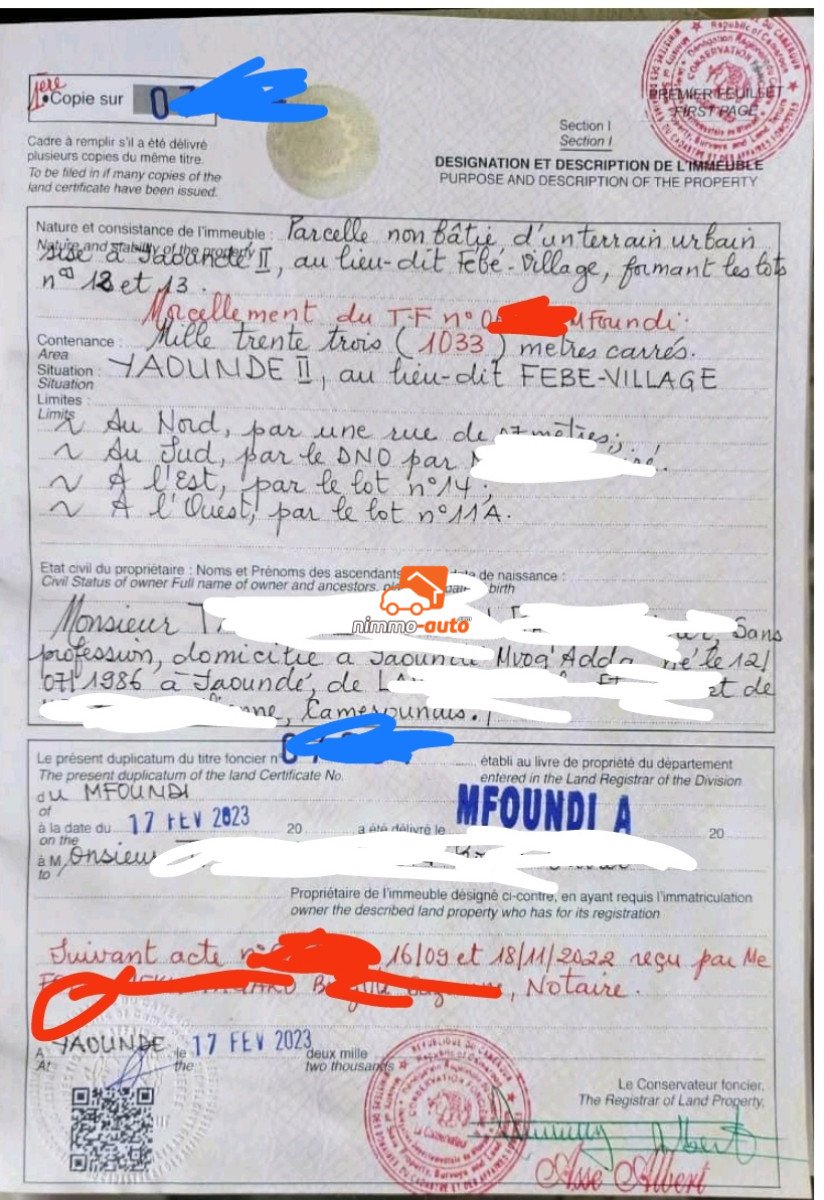 1ère
Copie sur 07
Cadre à remplir s'il a été délivré
plusieurs copies du même titre.
To be filed in if many copies of the
land certificate have been issued.
PREMIER FEUILLET
FIRST PAGE
Section I
Section I
DESIGNATION ET DESCRIPTION DE L'IMMEUBLE
PURPOSE AND DESCRIPTION OF THE PROPERTY
Nature et consistance de l'immeuble : Parcelle non bâtie, d'un terrain urbain
Nature and stability of the property
sise à Yaoundé II, au lieu-dit Febe-Village, formant les lots
et 13.
Morcellement du T.F n° Mfoundi.
Contenance : Mille trente trois (1033) mètres carrés.
Area
Situation : YAOUNDE II, au lieu-dit FEBE-VILLAGE
Situation
Limites :
Limits
~ Au Nord, par une rue de mètres;
~ Au Sud, par le DNO par
~ A l'Est, par le lot n°14 ;
~ A l'Ouest, par le lot n°11A.
Etat civil du propriétaire : Noms et Prénoms des ascendants de naissance :
Civil Status of owner Full name of owner and ancestors, birth
nimmo-auto
Monsieur Sans
profession, domicilié à Yaoundé Mvog'Adda, né le 12/
07/1986 à Yaoundé, de et de
Camerounais.
Le présent duplicatum du titre foncier n° établi au livre de propriété du département
The present duplicatum of the land Certificate No. entered in the Land Registrar of the Division
du MFOUNDI
of
MFOUNDI A
à la date du 17 FEV 2023 20 a été délivré le 20
on the
à Monsieur
to
Propriétaire de l'immeuble désigné ci-contre, en ayant requis l'immatriculation
owner the described land property who has for its registration
Suivant acte n° 16/09 et 18/11/2022 reçu par Me
Notaire.
A YAOUNDE le 17 FEV 2023 deux mille
At the two thousands
Le Conservateur foncier.
The Registrar of Land Property.
Asse Albert